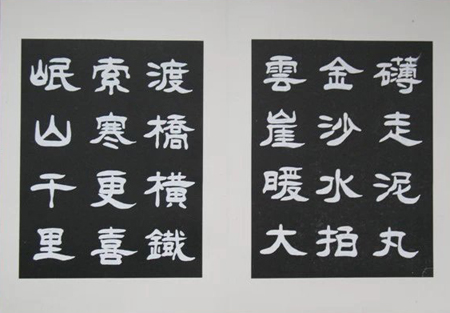 礴走泥丸
金沙水拍
雲崖暖大
渡橋橫鐵
索寒更喜
岷山千里